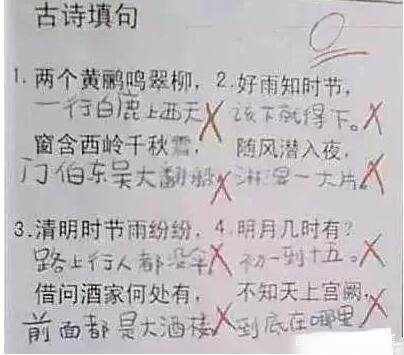 古诗填句
0
1.两个黄鹂鸣翠柳，2.好雨知时节，
一行白鹿上西天 该下就得下。
窗含西岭千秋雪， 随风潜入夜，
门伯东吴大翻船 淋湿一大片。
3.清明时节雨纷纷，4.明月几时有？
路上行人都没伞 初一到十五。
借问酒家何处有， 不知天上宫阙，
前面都是大酒楼 到底在哪里